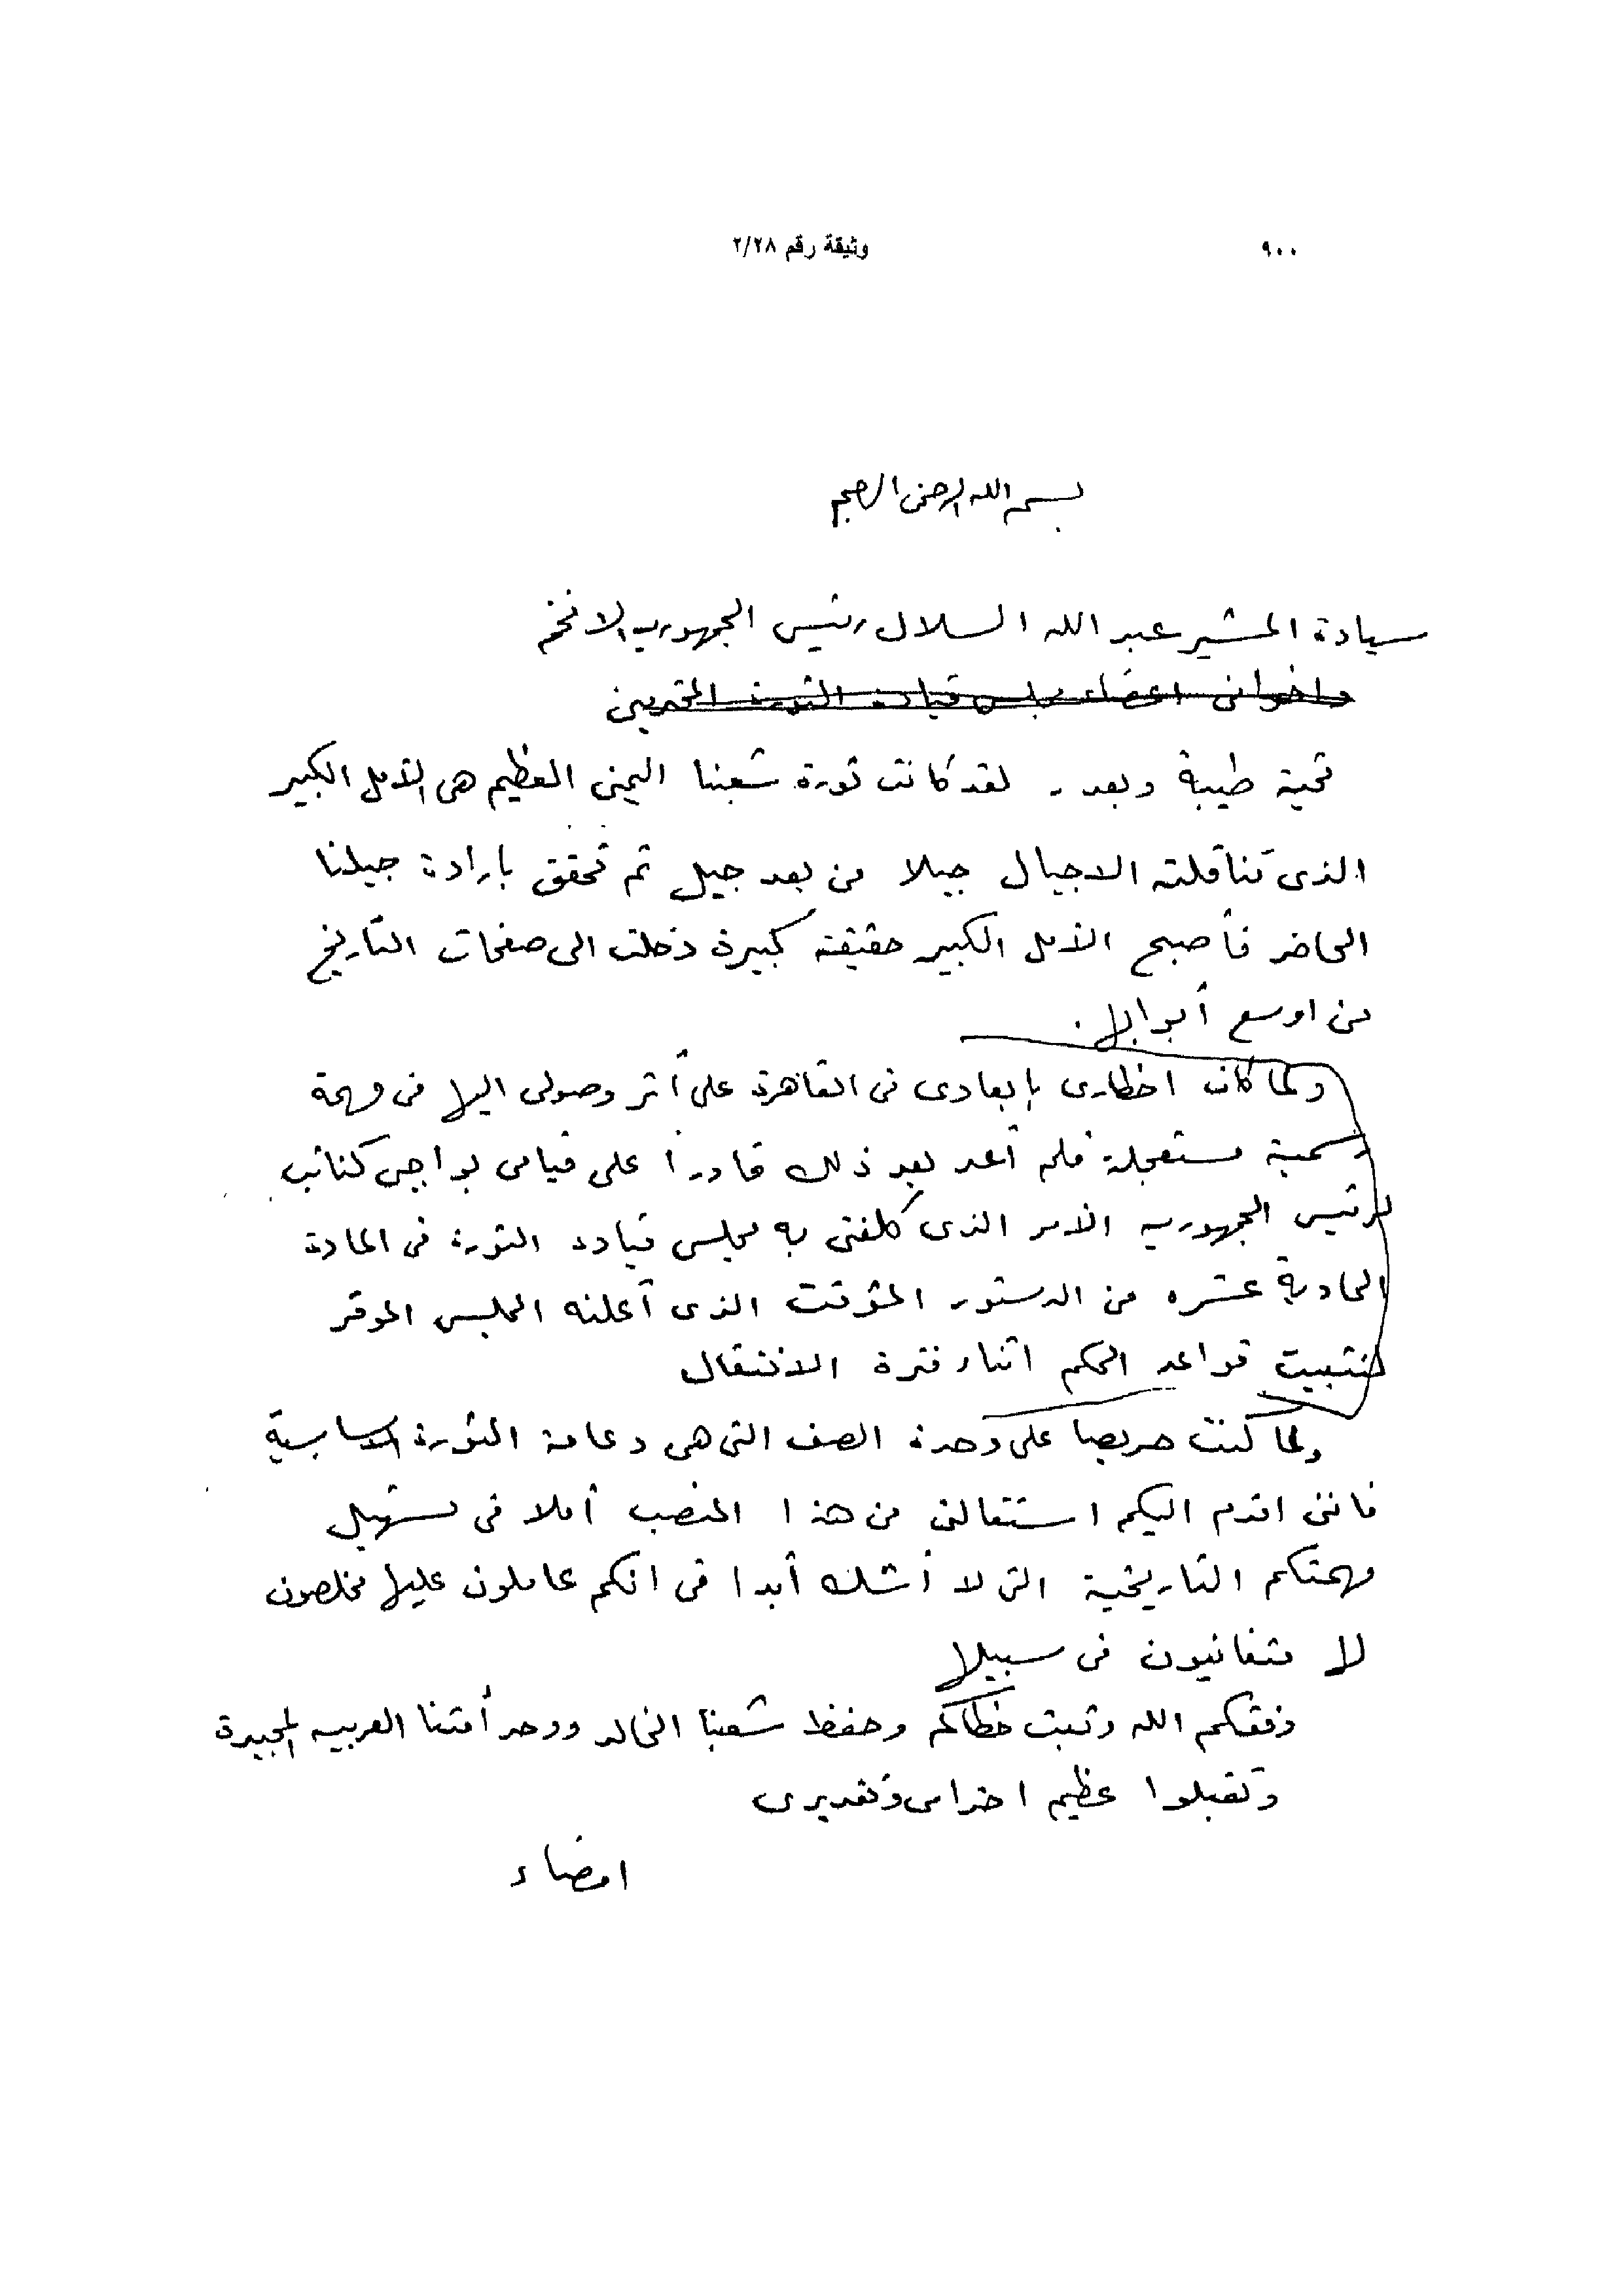 ٩٠٠
وثيقة رقم ٢/٢٨
بسم الله الرحمن الرحيم
سيادة المشير عبد الله السلال رئيس الجمهورية الافخم
واخواني اعضاء مجلس قيادة الثورة المحترمين
تحية طيبة وبعد . لقد كانت ثورة شعبنا اليمني العظيم هي الأمل الكبير
الذى تناقلته الاجيال جيلا من بعد جيل ثم تحقق بارادة جيلنا
الحاضر فأصبح الأمل الكبير حقيقة كبيرة دخلت الى صفحات التاريخ
من اوسع أبوابها .
ولما كان اخطارى بإبعادى فى القاهرة على أثر وصولى اليها فى مهمة
رسمية مستعجلة فلم أعد بعد ذلك قادرا على قيامى بواجبى كنائب
لرئيس الجمهورية الأمر الذى كلفنى به مجلس قيادة الثورة فى المادة
الحادية عشره من الدستور المؤقت الذى أعلنه المجلس الموقر
لتثبيت قواعد الحكم اثناء فترة الانتقال
ولما كنت حريصا على وحدة الصف التى هى دعامة الثورة الاساسية
فاننى اقدم اليكم استقالتى من هذا المنصب أملا فى تسهيل
مهمتكم التاريخية التى لا أشك أبدا فى انكم عاملون عليها مخلصون
لها متفانيون فى سبيلها
وفقكم الله وثبت خطاكم وحفظ شعبنا الخالد ووحد أمتنا العربيه المجيدة
وتقبلوا عظيم احترامى وتقديرى
امضاء